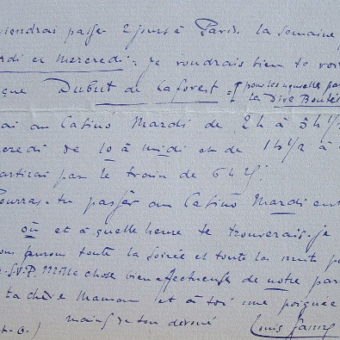 viendrai passer 2 jours à Paris la semaine p
rdi et mercredi. je voudrais bien te voi
que Dubut de Laforest et pour les nouvelles par
la Dive Bouteil
ai au Casino Mardi de 2h à 3h½
credi de 10 à midi et de 1h½ à
partirai par le train de 6h
Pourras-tu passer au Casino Mardi ent
où et à quelle heure te trouverais-je
nous aurons toute la soirée et toute la nuit p
S.V.P. Mille choses bien affectueuses de notre par
ta chère Maman et à toi une poignée
main de ton dévoué Louis Ganne